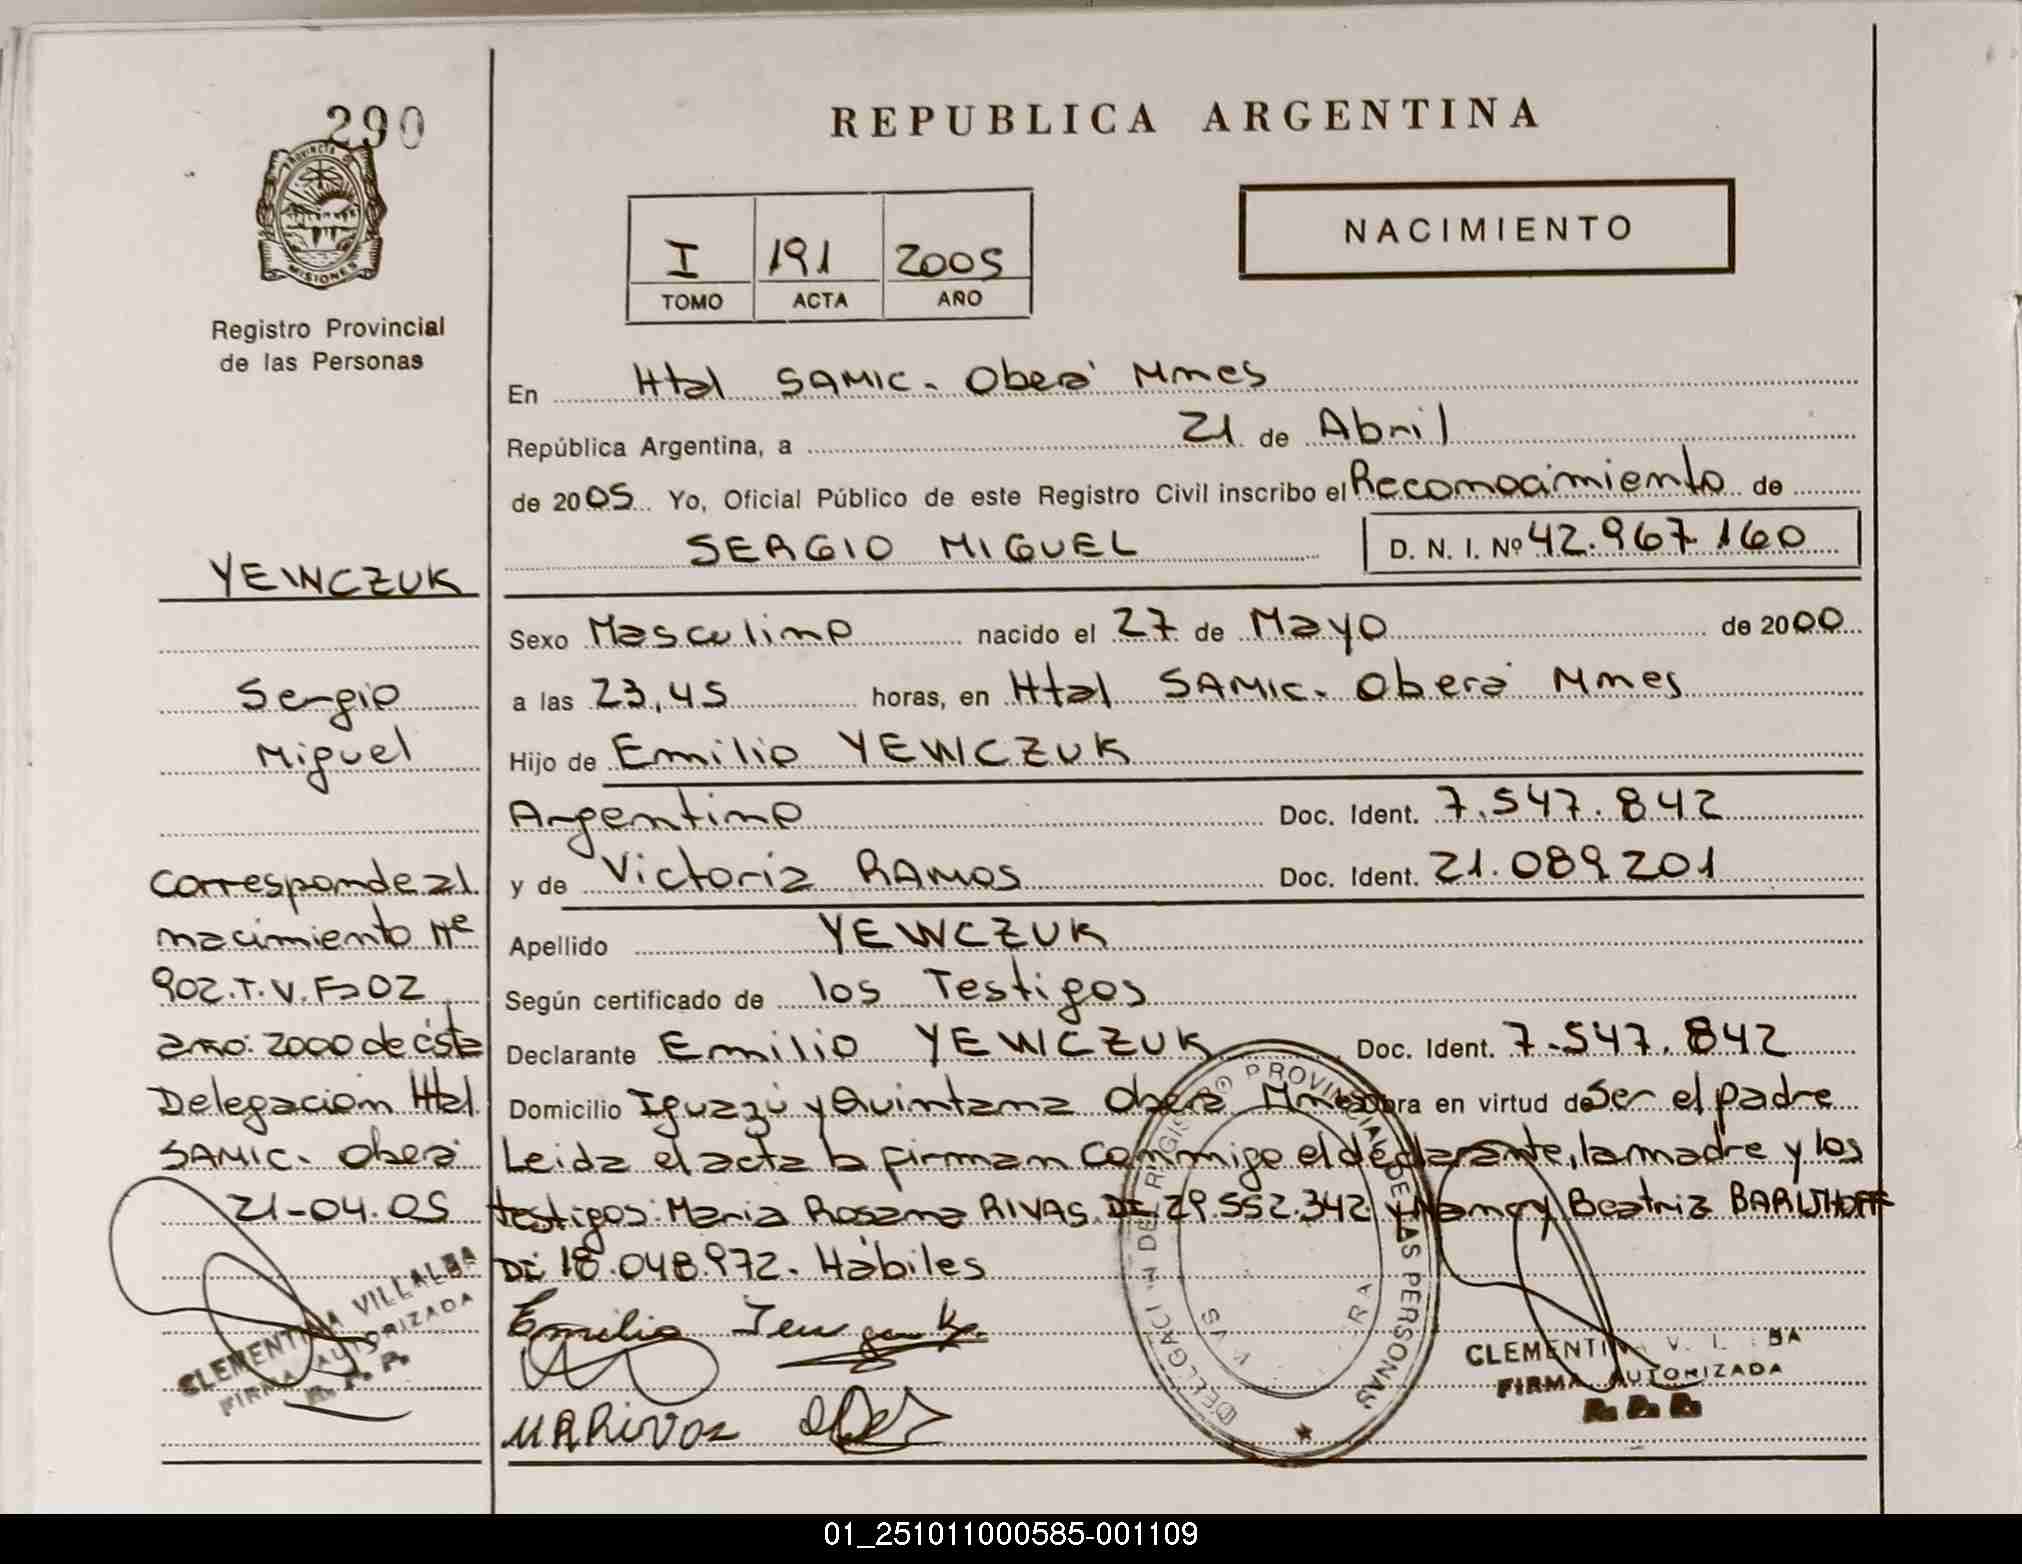 290
PROVINCIA DE
MISIONES
Registro Provincial
de las Personas
REPUBLICA ARGENTINA
NACIMIENTO
I 191 2005
TOMO ACTA AÑO
En Htal SAMIC. Oberá Mnes
República Argentina, a 21 de Abril
de 2005 Yo, Oficial Público de este Registro Civil inscribo el Reconocimiento de
SERGIO MIGUEL D. N. I. Nº 42.967.160
Sexo Masculino nacido el 27 de Mayo de 2000
a las 23,45 horas, en Htal SAMIC. Oberá Mnes
Hijo de Emilio YEWCZUK
Argentino Doc. Ident. 7.547.842
y de Victoria RAMOS Doc. Ident. 21.089.201
Apellido YEWCZUK
Según certificado de los Testigos
Declarante Emilio YEWCZUK Doc. Ident. 7.547.842
Domicilio Iguazú y Quintana Oberá Mnes obra en virtud de Ser el padre
Leida el acta la firman conmigo el declarante, la madre y los
testigos: Maria Rosana RIVAS. DI. 29.552.342 y Nancy Beatriz BARWHOFF
DI 18.048.972. Hábiles
Emilio
MRRivas
DEL REGISTRO PROVINCIAL DE LAS PERSONAS
CLEMENTINA V
FIRMA AUTORIZADA
R. P. P.
YEWCZUK
Sergio
Miguel
Corresponde al
nacimiento Nº
902.T.V.Fº02
año: 2000 de ésta
Delegación Htal
SAMIC. Oberá
21-04.05
CLEMENTINA VILLALBA
FIRMA AUTORIZADA
R. P. P.
01_251011000585-001109